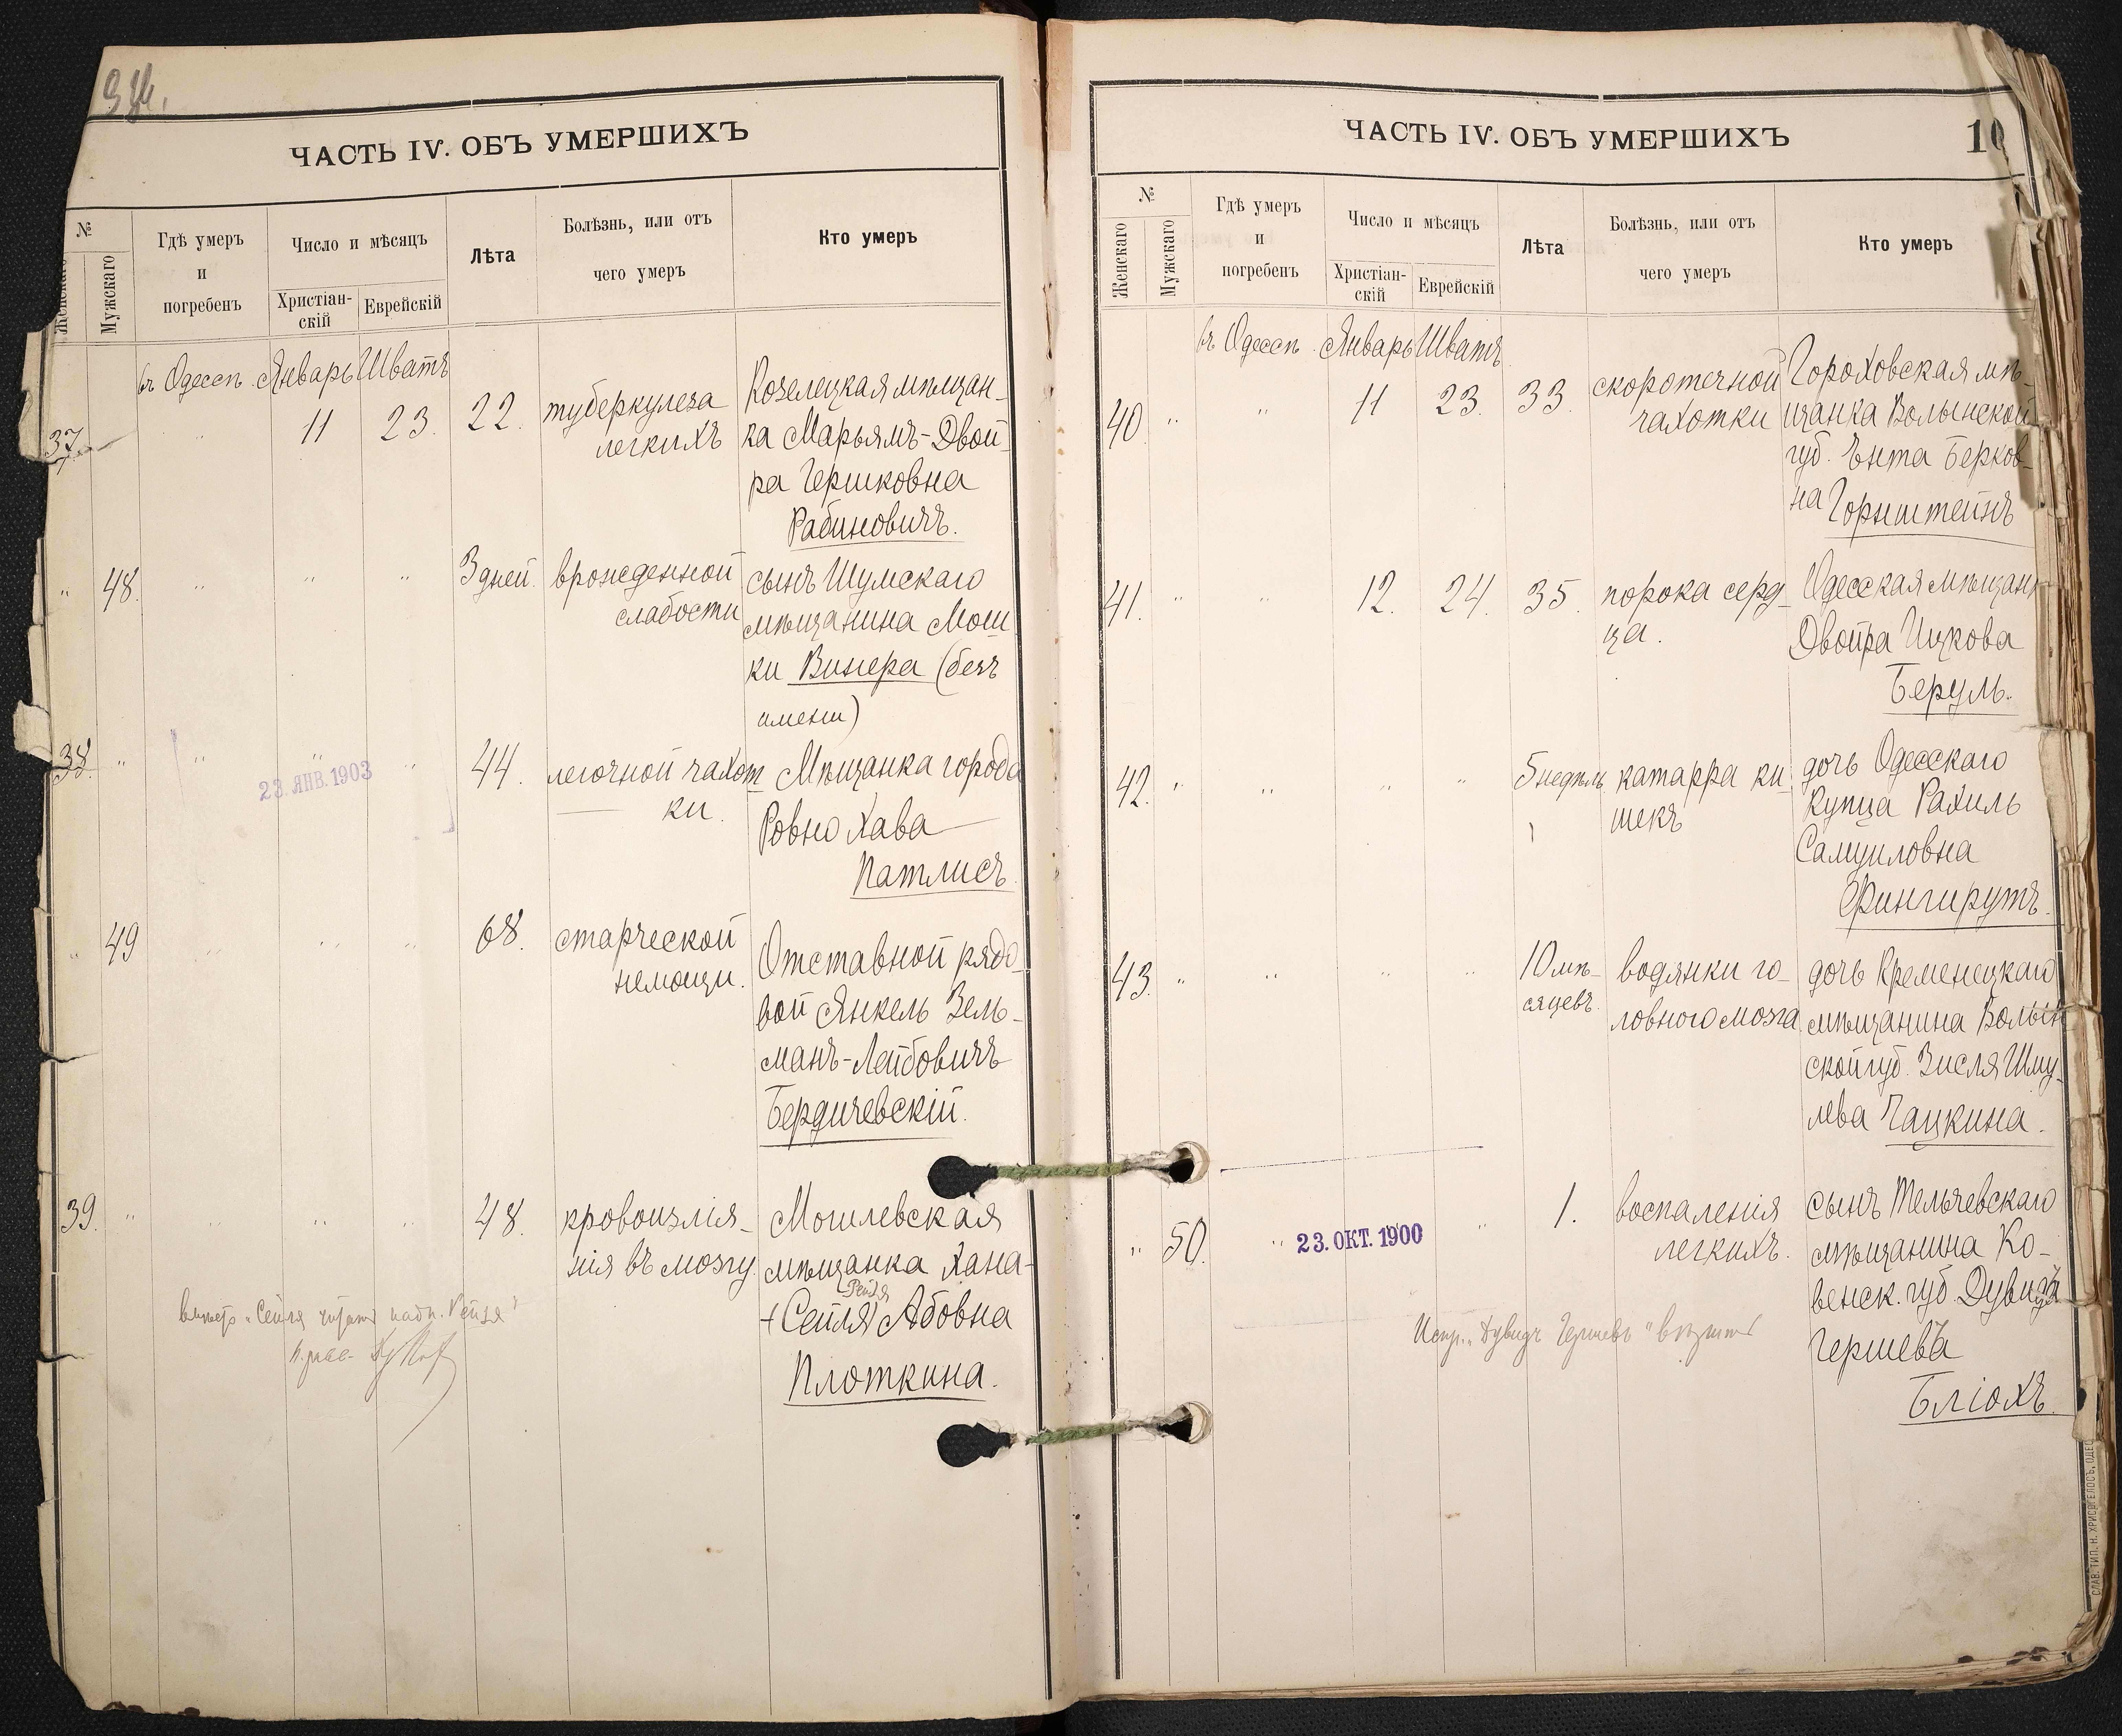 ЧАСТЬ IV. ОБЪ УМЕРШИХЪ
№
Женскаго
Мужскаго
Гдѣ умеръ
и
погребенъ
Число и мѣсяцъ
Христіан-
скій
Еврейскій
Лѣта
Болѣзнь, или отъ
чего умеръ
Кто умеръ
въ Одессѣ Январь Шватъ
37. " 11 23. 22. туберкулеза
легкихъ
Козелецкая мѣщан-
ка Марьямъ-Двой-
ра Гершковна
Рабиновичъ.
" 48. " " " 3 дней. врожденной
слабости
сынъ Шумскаго
мѣщанина Мош
ки Винера (безъ
имени)
38. " " " " 44. легочной чахот
ки.
23. ЯНВ. 1903
Мѣщанка города
Ровно Хава
Патлисъ
" 49 " " " 68. старческой
немощи.
Отставной рядо-
вой Янкель Зель-
манъ-Лейбовичъ
Бердичевскій.
39. " " " " 48. кровоизлія-
нія въ мозгу.
Могилевская
мѣщанка Хана-
Рейзя
(Сейля) Абовна
Плоткина.
вмѣсто "Сейля" читать надп. "Рейзя"
ЧАСТЬ IV. ОБЪ УМЕРШИХЪ
10
№
Женскаго
Мужскаго
Гдѣ умеръ
и
погребенъ
Число и мѣсяцъ
Христіан-
скій
Еврейскій
Лѣта
Болѣзнь, или отъ
чего умеръ
Кто умеръ
въ Одессѣ Январь Шватъ
40. " " 11 23. 33. скоротечной
чахотки
Гороховская мѣ-
щанка Волынской
губ. Ента Берков-
на Горнштейнъ
41. " " 12. 24. 35. порока серд-
ца.
Одесская мѣщан
Двойра Ицкова
Беруль.
42. " " " " 5 недѣль катарра ки
шекъ
дочь Одесскаго
купца Рахиль
Самуиловна
Фингирутъ.
43. " " " " 10 мѣ-
сяцевъ.
водянки го-
ловного мозга
дочь Кременецкаго
мѣщанина Волын
ской губ. Зисля Шму-
лева Чацкина.
" 50. " 23. ОКТ. 1900 " 1. воспаленія
легкихъ.
сынъ Тельчевскаго
мѣщанина Ко-
венск. губ. Дувидъ
Гершевъ
Бліохъ.
Испр. "Дувидъ Гершевъ"
СЛАВ. ТИП. Н. ХРИСОГЕЛОСЪ, ОДЕС